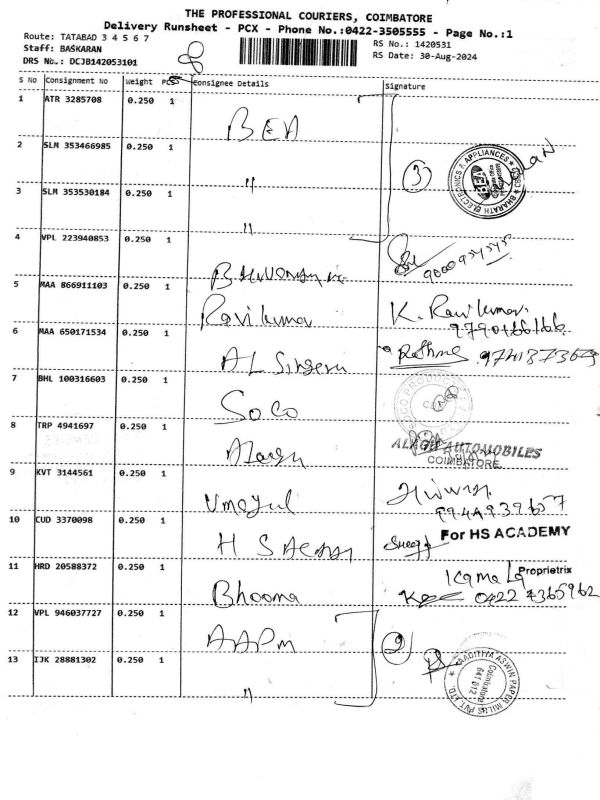 THE PROFESSIONAL COURIERS, COIMBATORE
Delivery Runsheet - PCX - Phone No.:0422-3505555 - Page No.:1
Route: TATABAD 3 4 5 6 7
RS No.: 1420531
Staff: BASKARAN
RS Date: 30-Aug-2024
DRS No.: DCJB142053101
8
S No Consignment No Weight PCS Consignee Details Signature
1 ATR 3285708 0.250 1 BEA
2 SLM 353466985 0.250 1 " 3
BHARATH ELECTRONICS & APPLIANCES
BEA
3 SLM 353530184 0.250 1 "
4 VPL 223940853 0.250 1
5 MAA 866911103 0.250 1 Ravi kumar K. Ravi kumar.
9790166166
6 MAA 650171534 0.250 1
7 BHL 100316603 0.250 1 SOCO
8 TRP 4941697 0.250 1 ALAGU AUTOMOBILES
COIMBATORE
9 KVT 3144561 0.250 1
10 CUD 3370098 0.250 1 For HS ACADEMY
Proprietrix
11 HRD 20588372 0.250 1 Bhooma Kamala
0422 4365962
12 VPL 946037727 0.250 1 AAPM 2
13 IJK 28881302 0.250 1 "
AADITYA ASWIN PAPER MILLS PVT. LTD.
Coimbatore
641 012